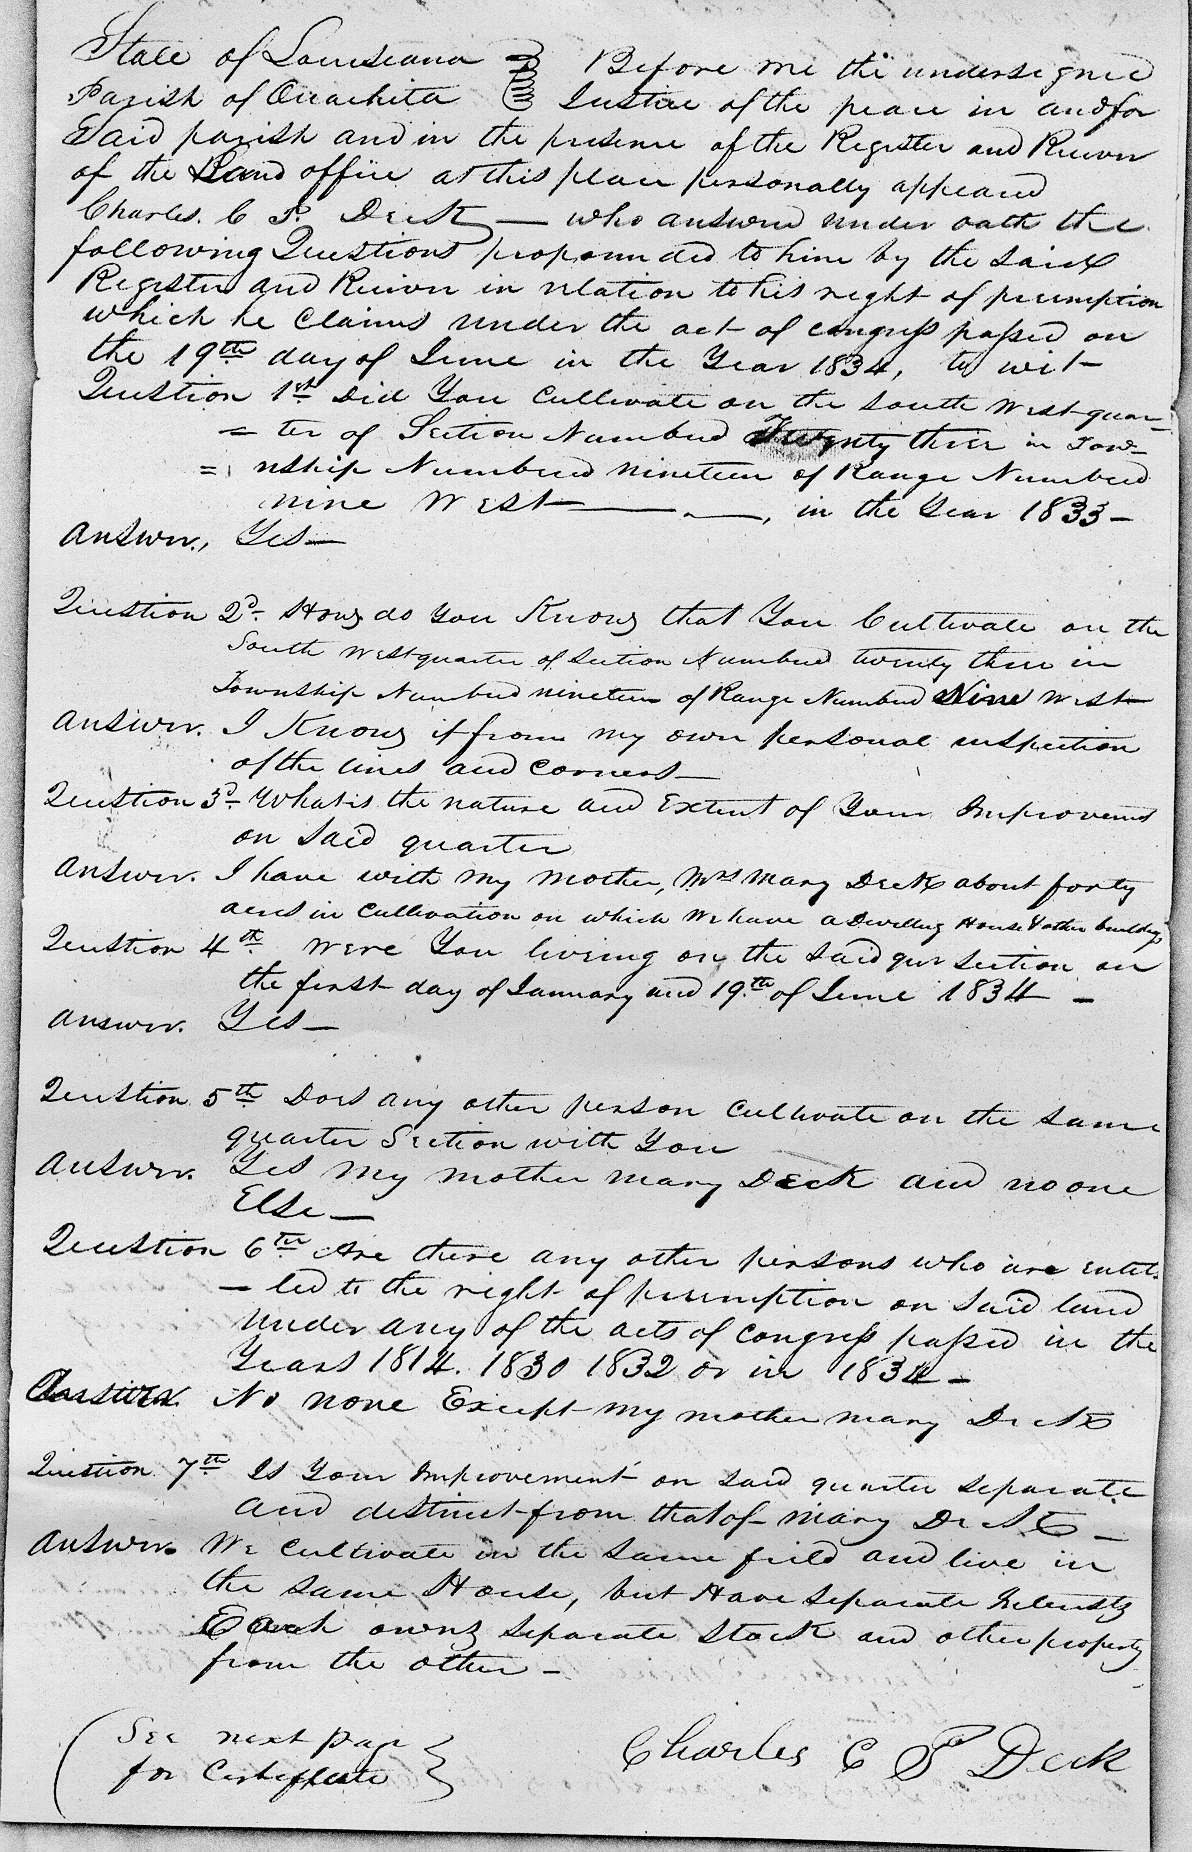 State of Louisiana } Before me the undersigned
Parish of Ouachita } Justice of the peace in and for
Said parish and in the presence of the Register and Receiver
of the Land office at this place personally appeared
Charles. C P. Deck — who answered under oath the
following Questions propounded to him by the said
Register and Receiver in relation to his right of preemption
which he claims under the act of congress passed on
the 19th day of June in the Year 1834, to wit-
Question 1st Did You Cultivate on the South West quar-
= ter of Section Numbered Twenty three in Tow-
= nship Numbered nineteen of Range Numbered
nine West — — , in the Year 1833 -
Answer., Yes —
Question 2d- How do You Know that You Cultivate on the
South West quarter of Section Numbered twenty three in
Township Numbered nineteen of Range Numbered Nine West
Answer. I Know it from my own personal inspection
of the lines and corners —
Question 3d- What is the nature and Extent of Your Improvemt
on Said quarter
Answer. I have with my mother, Mrs Mary Deck about forty
acres in Cultivation on which We have a Dwelling House & other buildings
Question 4th Were You living on the Said qur section on
the first day of January and 19th of June 1834 -
Answer. Yes —
Question 5th Does any other person Cultivate on the same
quarter Section with You
Answer. Yes My mother mary Deck and no one
Else —
Question 6th Are there any other persons who are entit-
- led to the right of preemption on Said land
Under any of the acts of Congress passed in the
Years 1814. 1830 1832 or in 1834 -
Answer. No none Except my mother mary Deck
Question 7th Is Your Improvement on said quarter separate
and distinct from that of mary Deck —
Answer. We Cultivate in the same field and live in
the same House, but Have separate Interests
Each owns separate stock and other property
from the other —
( See next page
for Certificate }
Charles C P Deck